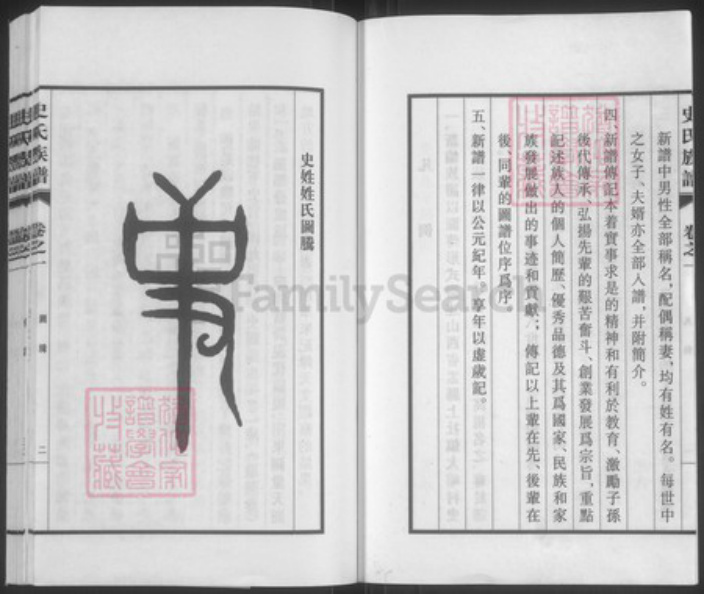 史氏族譜
卷之一
新譜中男性全部稱名，配偶稱妻，均有姓有名。每世中
之女子、夫婿亦全部入譜，并附簡介。
四、新譜傳記本着實事求是的精神和有利於教育、激勵子孫
後代傳承、弘揚先輩的艱苦奮斗、創業發展爲宗旨，重點
記述族人的個人簡歷、優秀品德及其爲國家、民族和家
族發展做出的事迹和貢獻；傳記以上輩在先、後輩在
後、同輩的圖譜位序爲序
五、新譜一律以公元紀年。享年以虛歲記。
史姓姓氏圖騰
史氏族譜
卷之一
二
FamilySearch